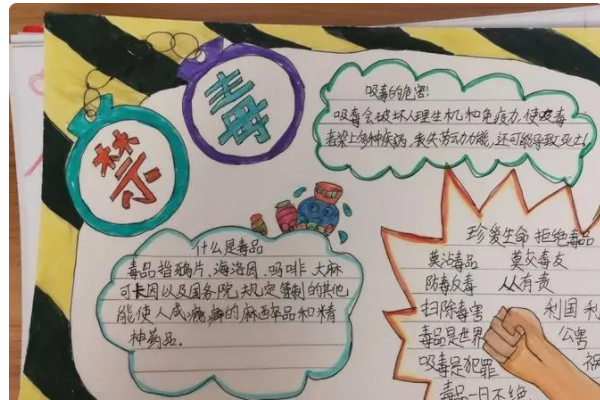 禁
毒
吸毒的危害!
吸毒会破坏人理生机和免疫力,使吸毒
者染上多种疾病,丧失劳动力能,还可能导致死亡!
什么是毒品
毒品指鸦片,海洛因,吗啡,大麻
可卡因以及国务院规定管制的其他
能使人成瘾癖的麻醉品和精
神药品。
珍爱生命 拒绝毒品
莫沾毒品 莫交毒友
防毒反毒 人人有责
扫除毒害 利国利
毒品是世界 公害
吸毒是犯罪 祸
毒品一日不绝